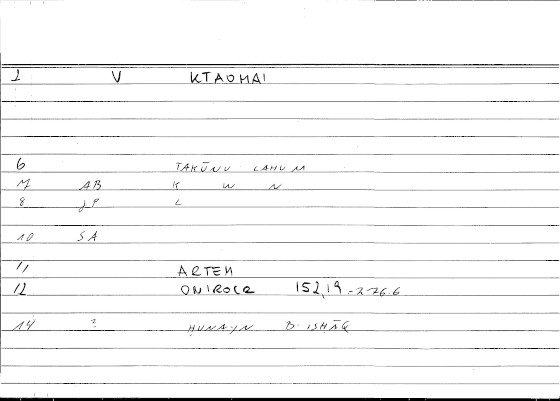 1 V KTAOMAI
6 TAKŪNU LAHUM
M AB K W N
8 JP L
10 SA
11 ARTEM
12 ONIROCR 152,19 - 276.6
14 ? HUNAYN B. ISHĀQ